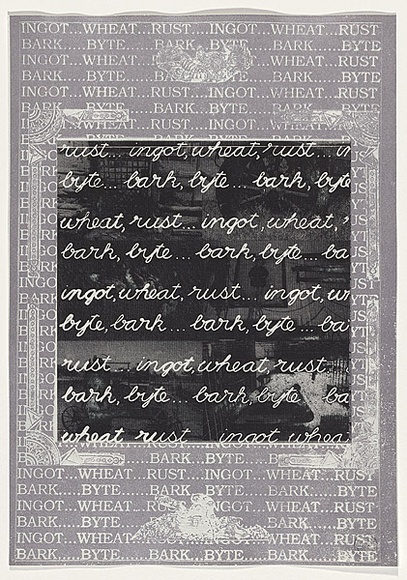 INGOT...WHEAT...RUST...INGOT...WHEAT...RUST
BARK.....BYTE.....BARK.....BYTE.....BARK.....BYTE
INGOT...WHEAT...RUST...INGOT...WHEAT...RUST
BARK.....BYTE.....BARK.....BYTE.....BARK.....BYTE
INGOT...WHEAT...RUST...INGOT...WHEAT...RUST
BARK.....BYTE.....BARK.....BYTE.....BARK.....BYTE
rust... ingot, wheat, rust... in
byte... bark, byte... bark, byte
wheat, rust... ingot, wheat,
bark, byte... bark, byte... ba
ingot, wheat, rust... ingot, w
byte, bark... bark, byte... ba
rust... ingot, wheat, rust...
bark, byte... bark, byte ba
wheat rust ingot whea
BARK.....BYTE.....BARK.....BYTE.....BARK.....BYTE
INGOT...WHEAT...RUST...INGOT...WHEAT...RUST
BARK.....BYTE.....BARK.....BYTE.....BARK.....BYTE
INGOT...WHEAT...RUST INGOT...WHEAT...RUST
BARK.....BYTE BARK.....BYTE
INGOT...WHEAT WHEAT...RUST
BARK.....BYTE.....BARK.....BYTE.....BARK.....BYTE